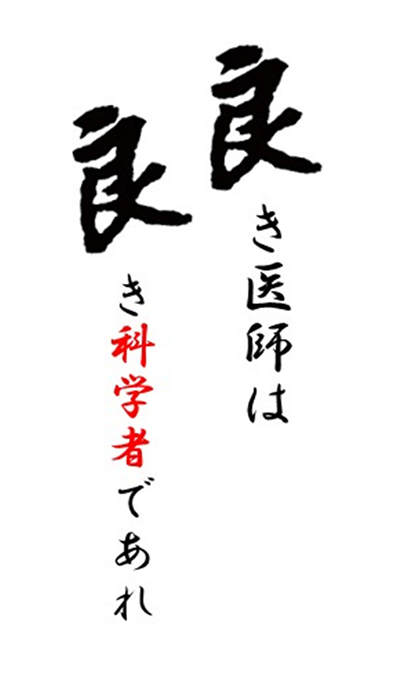 良き医師は
良き科学者であれ